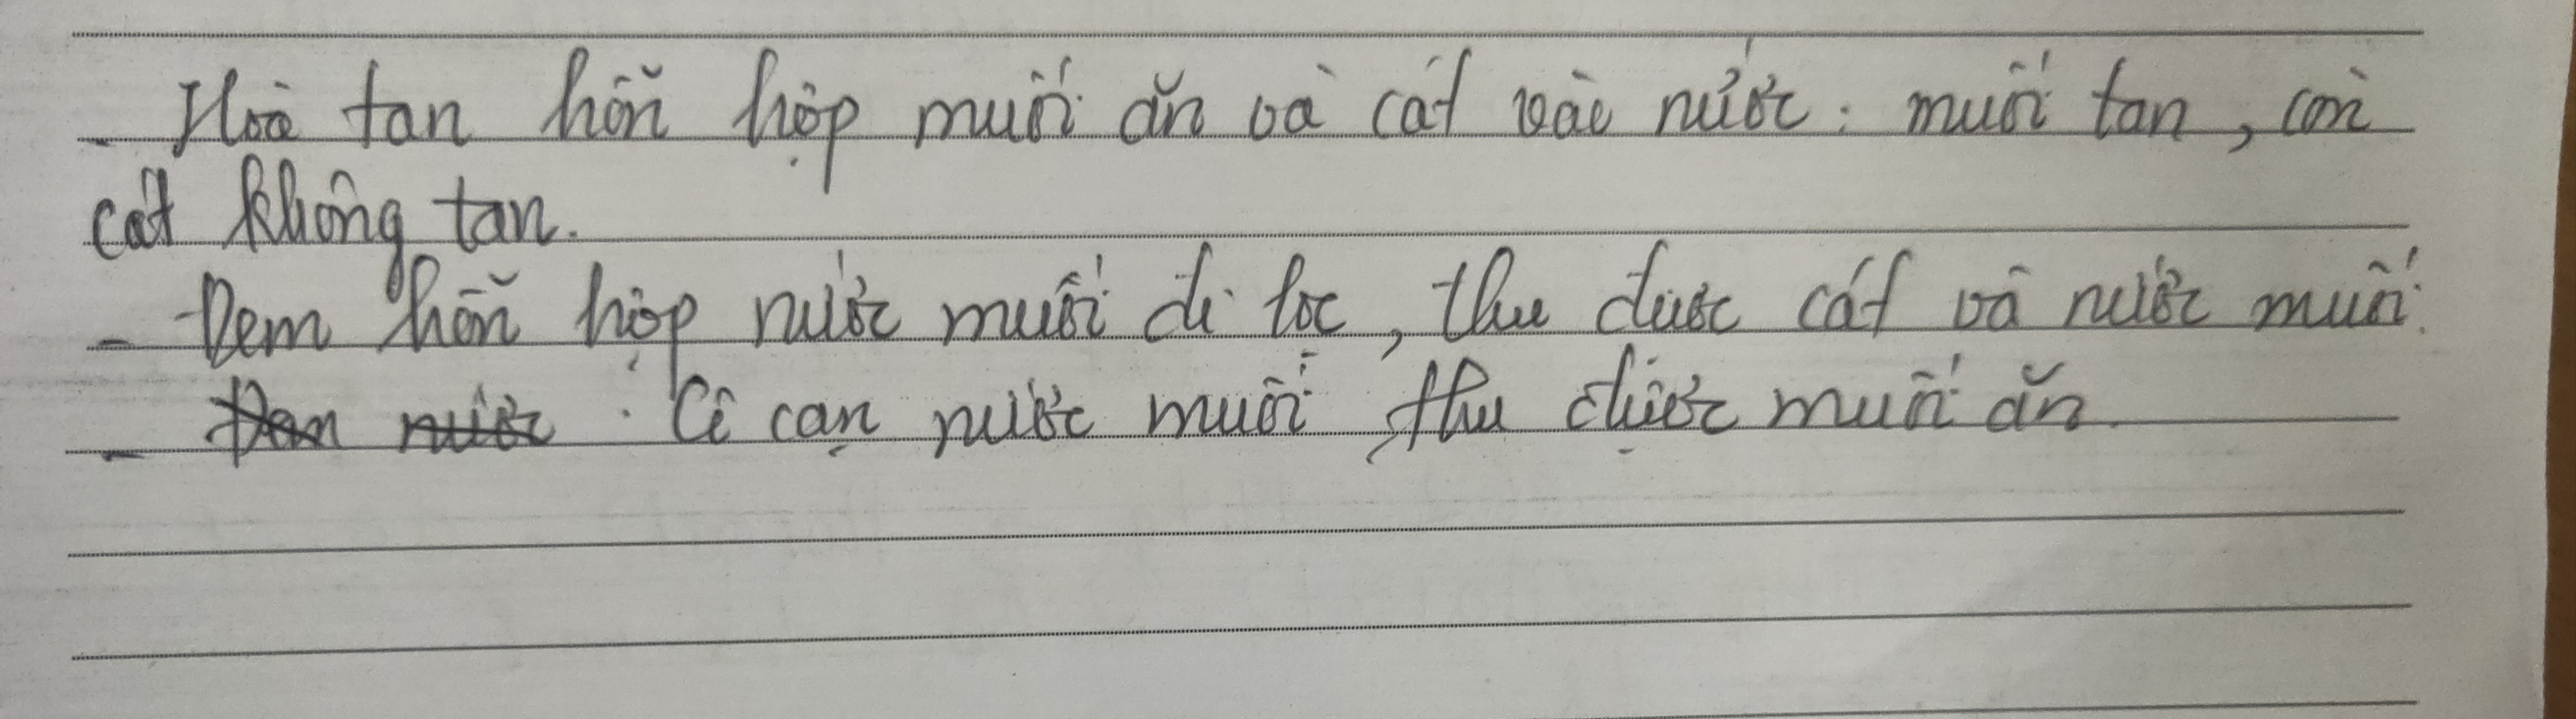 - Hoà tan hỗn hợp muối ăn và cát vào nước: muối tan, còn
cát không tan.
- Đem hỗn hợp nước muối đi lọc, thu được cát và nước muối.
- Đem nước. Cô cạn nước muối, thu được muối ăn.